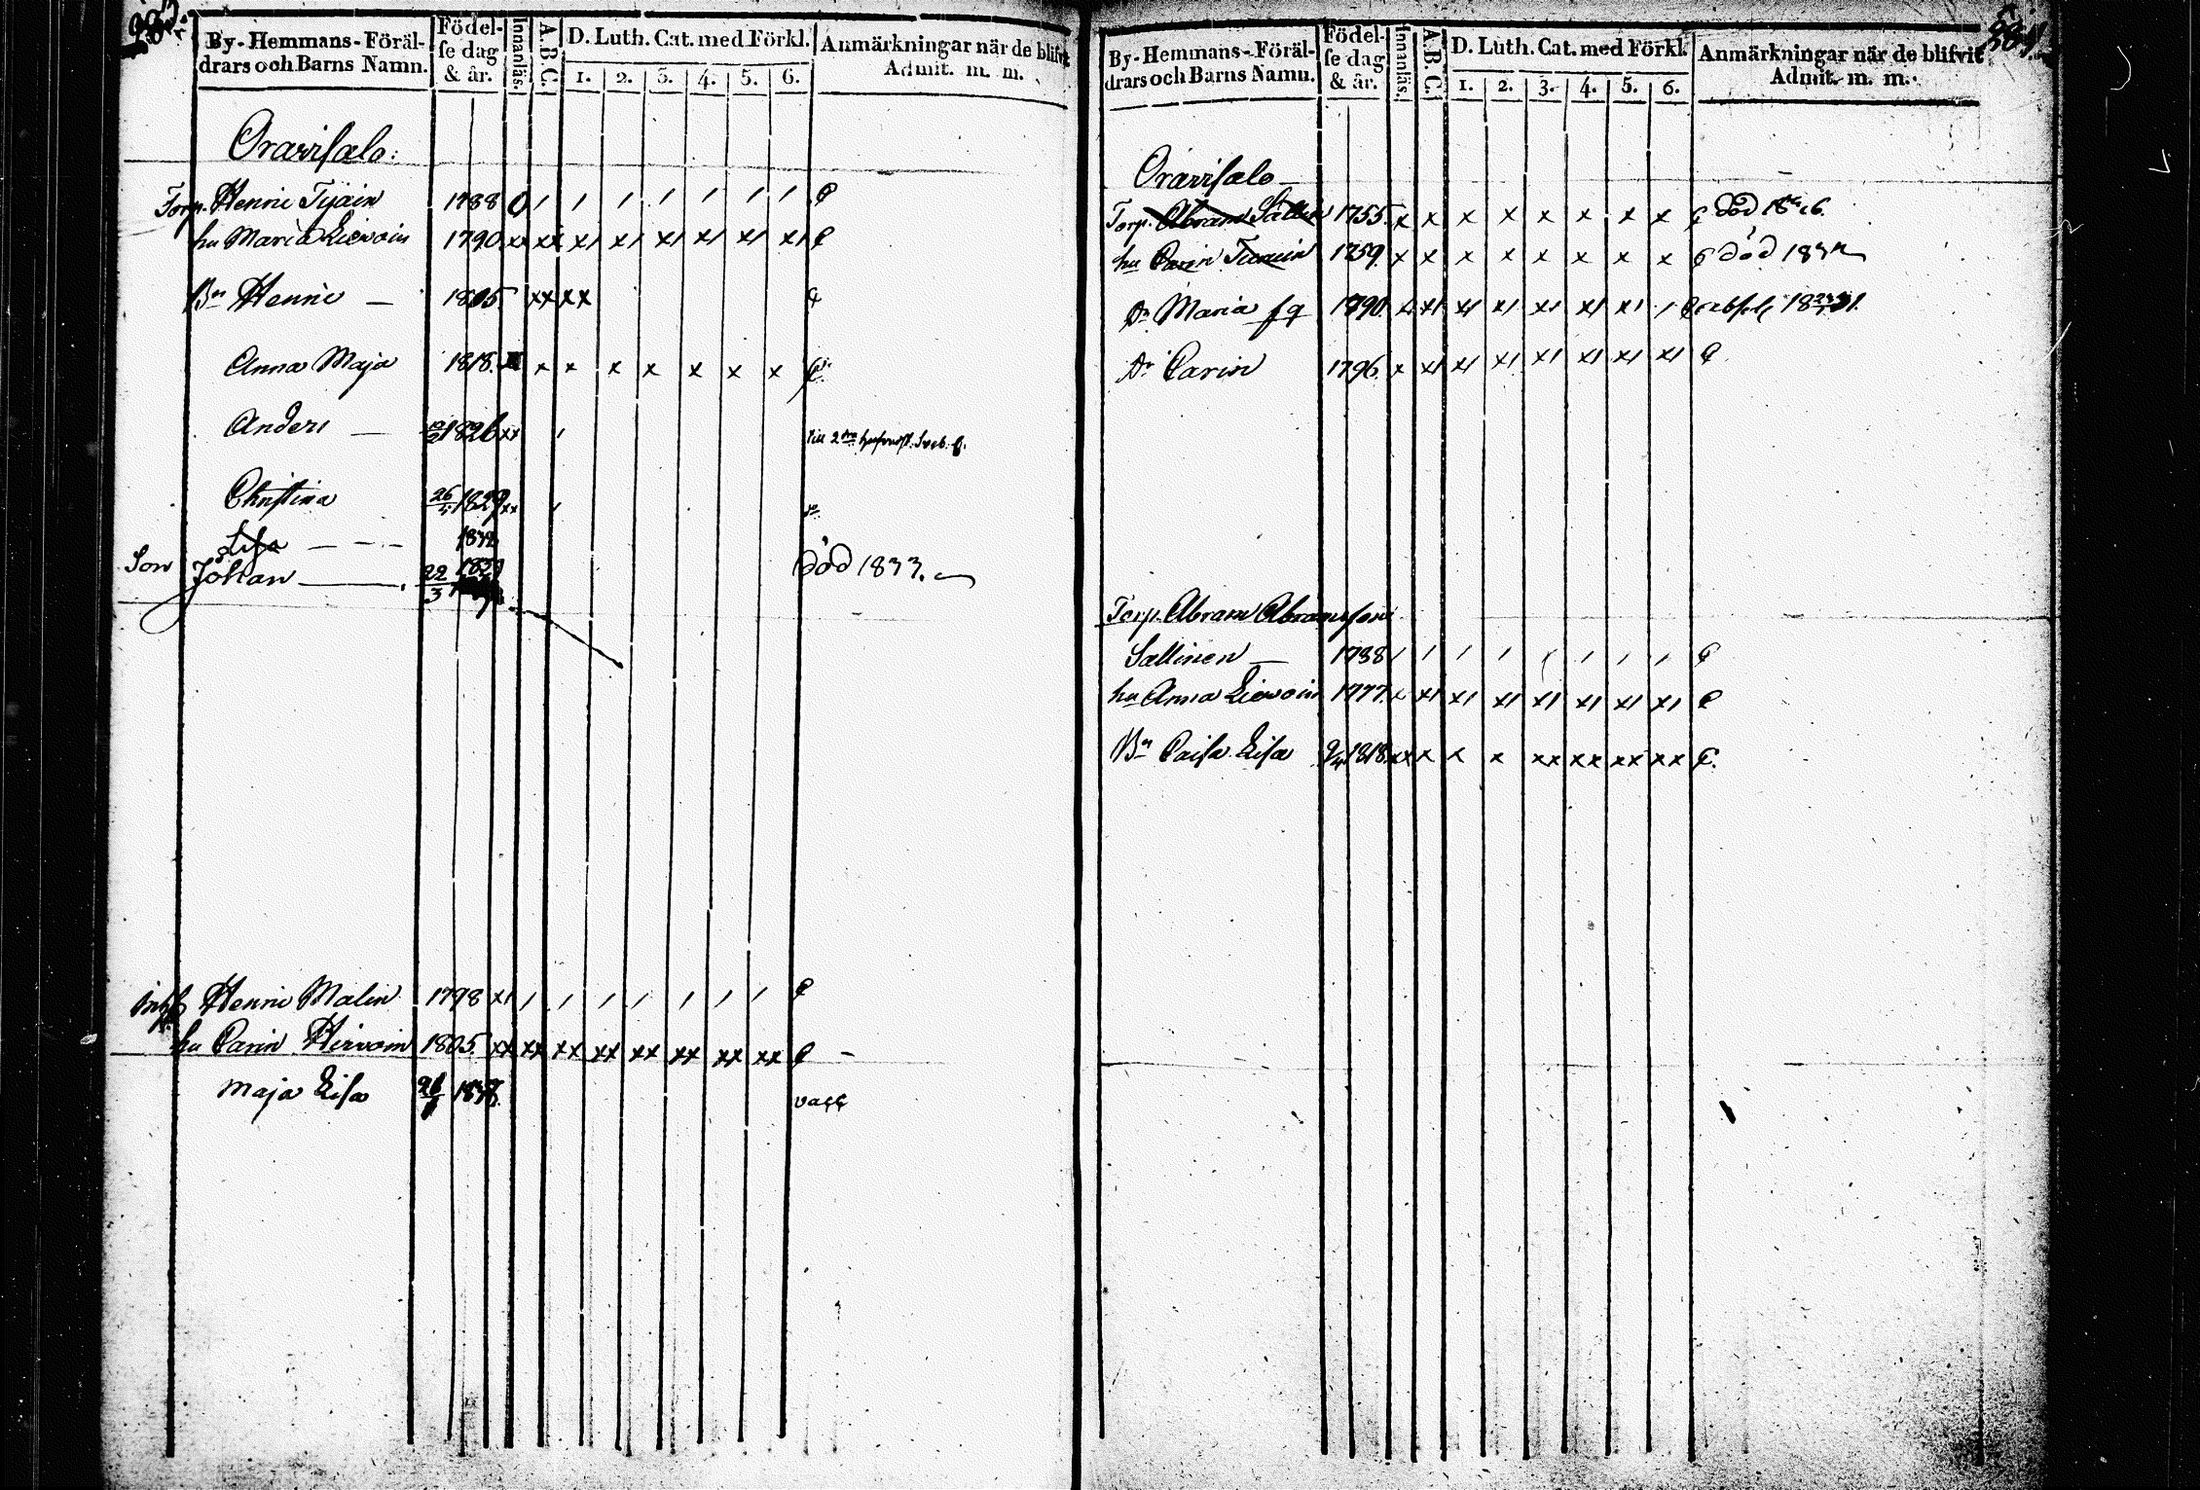 By-Hemmans-Föräl-
drars och Barns Namn.
Födel-
se dag
& år.
Innanläs.
A.B.C.
D. Luth. Cat. med Förkl.
1. 2. 3. 4. 5. 6.
Anmärkningar när de blifvit
Admit. m. m.
Oravisalo:
Torp. Henric Tijain 1788 0 / / / / / / / C
hu Maria Lievoin 1790 xx xx x/ x/ x/ x/ x/ x/ C
Bn Henric — 1805 xx xx C
Anna Maja 1818. x x x x x x x C
Anders — 1826 xx /
Christina 26/4 1829 xx /
Lisa — — —
Son Johan — 22/3 1829 död 1833.
Inh Henric Malin 1798 x/ / / / / / / / C
hu Carin Hirvoin 1805. xx xx xx xx xx xx xx xx C —
Maja Lisa vacc
By-Hemmans-Föräl-
drars och Barns Namn.
Födel-
se dag
& år.
Innanläs.
A.B.C.
D. Luth. Cat. med Förkl.
1. 2. 3. 4. 5. 6.
Anmärkningar när de blifvit
Admit. m. m.
Oravisalo
Torp. Abram Sallin 1755. x x x x x x x x C död
hu Carin 1759. x x x x x x x x C död
Dr Maria 1790 x/ x/ x/ x/ x/ x/ x/ / C
Dr Carin 1796. x x/ x/ x/ x/ x/ x/ x/ C
Torp. Abram Abramsson
Sallinen — 1788 / / / / / / / / C
hu Anna Lievoin 1777. x x/ x/ x/ x/ x/ x/ x/ C
Bn Caisa Lisa 9/4 1818. xx x x x xx xx xx xx C.